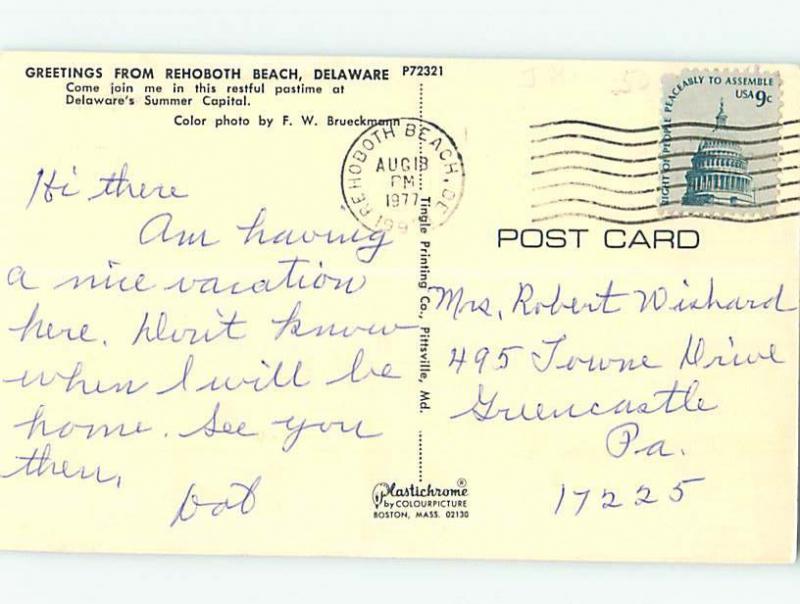 GREETINGS FROM REHOBOTH BEACH, DELAWARE P72321
Come join me in this restful pastime at
Delaware's Summer Capital.
Color photo by F. W. Brueckmann
REHOBOTH BEACH, DE
AUG 18
PM
1977
199
RIGHT OF PEOPLE PEACEABLY TO ASSEMBLE
USA 9c
Hi there
Am having
a nice vacation
here. Don't know
when I will be
home. See you
then.
Dot
Tingle Printing Co., Pittsville, Md.
POST CARD
Mrs. Robert Wishard
495 Towne Drive
Greencastle
Pa.
17225
Plastichrome®
by COLOURPICTURE
BOSTON, MASS. 02130